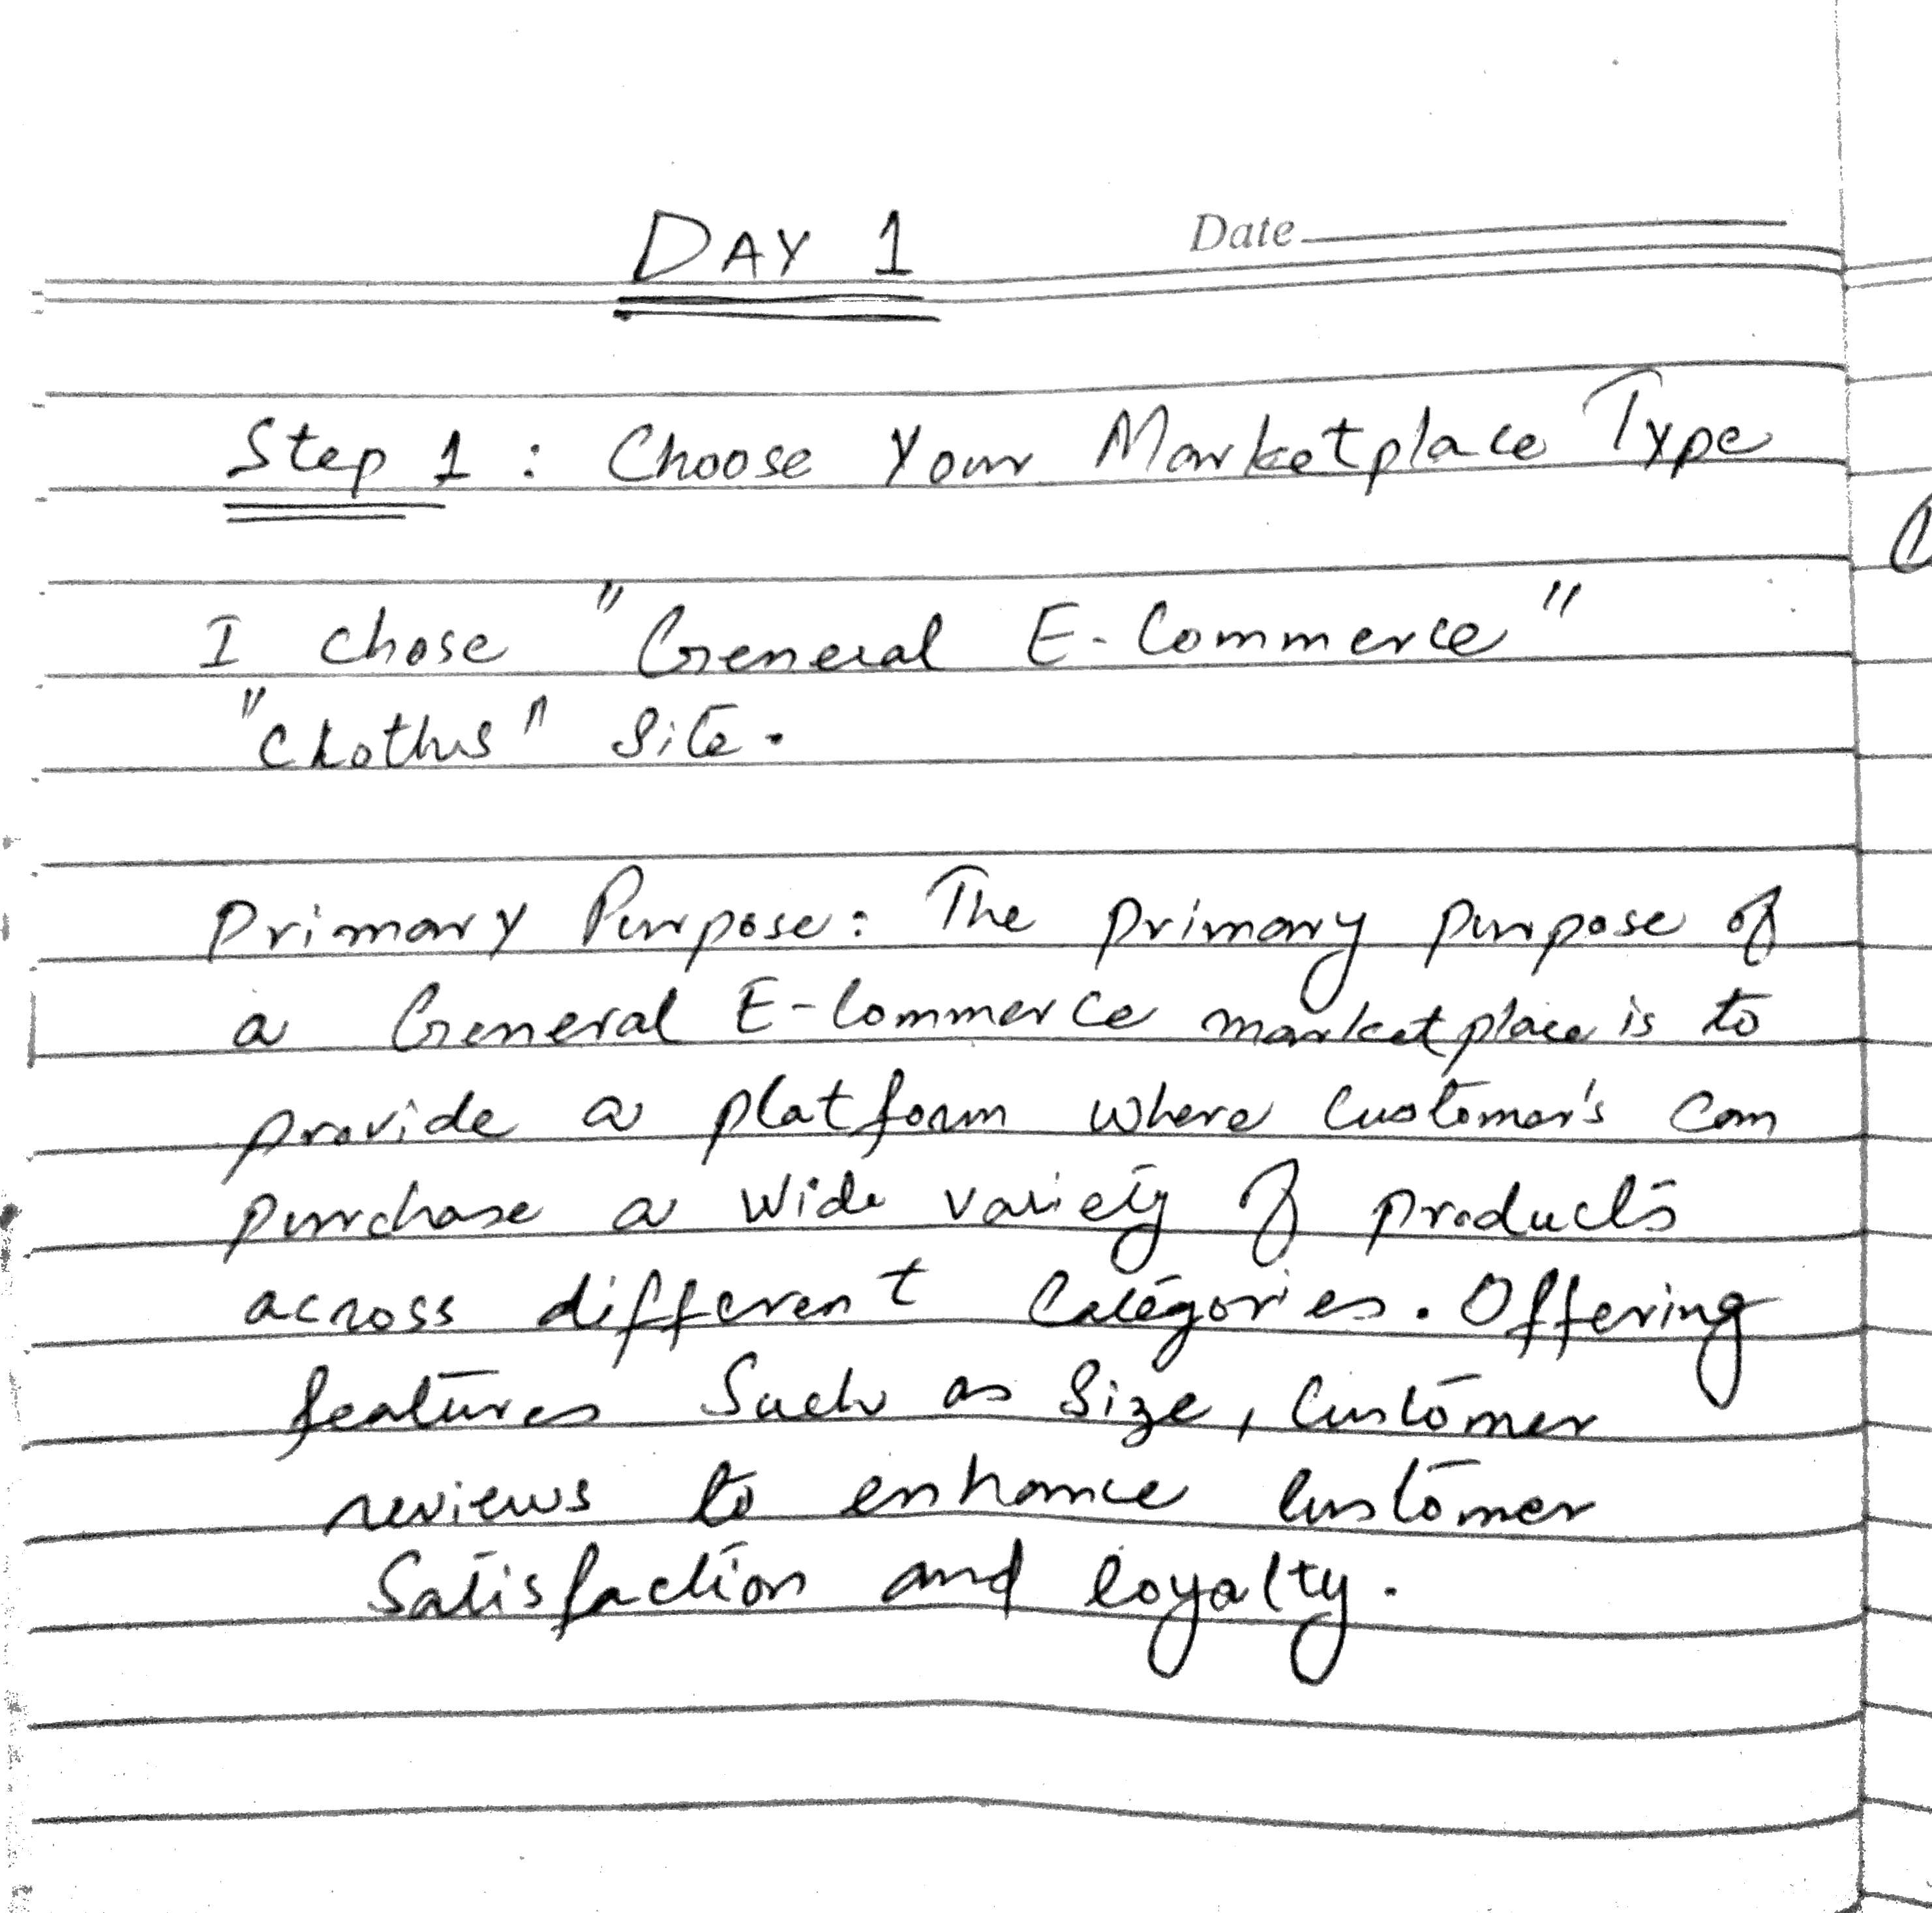 DAY 1
Date
Step 1 : Choose Your Marketplace Type
I chose "General E-Commerce"
"Clothes" Site.
Primary Purpose: The primary purpose of
a General E-Commerce marketplace is to
provide a platform where Customer's can
purchase a wide variety of products
across different Categories. Offering
features Such as Size, Customer
reviews to enhance Customer
Satisfaction and loyalty.